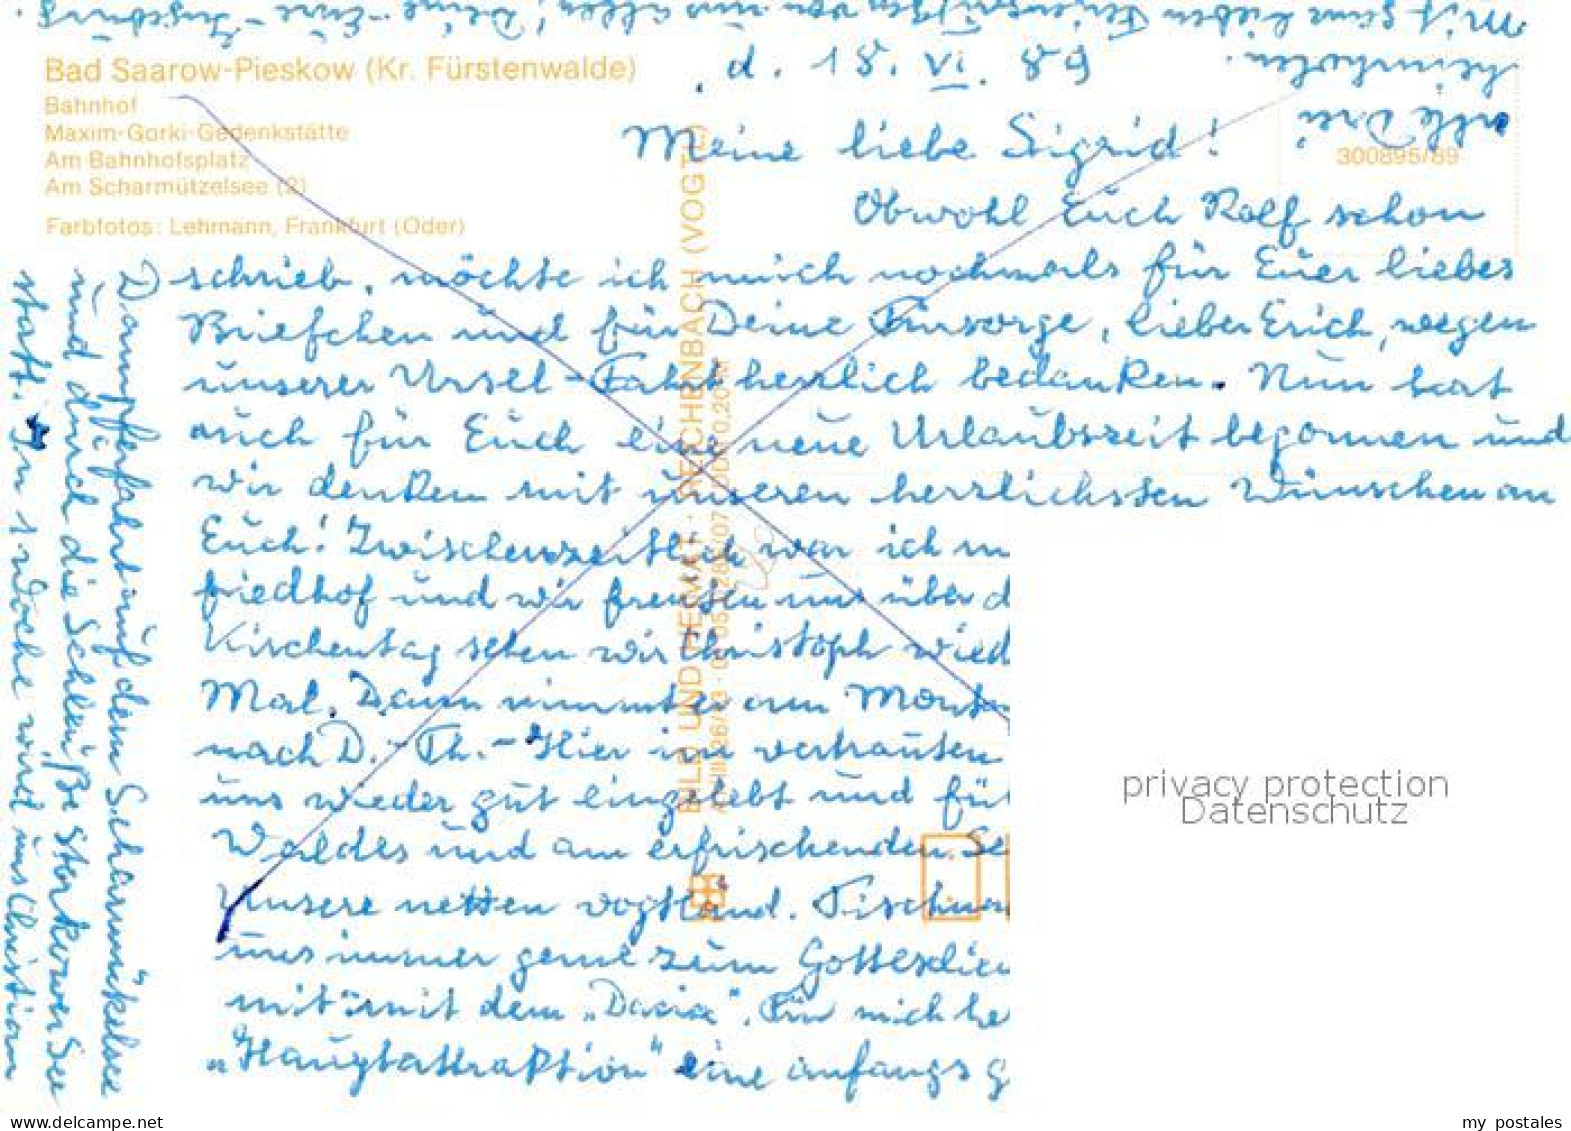 Bad Saarow-Pieskow (Kr. Fürstenwalde)
Bahnhof
Maxim-Gorki-Gedenkstätte
Am Bahnhofsplatz
Am Scharmützelsee (2)
Farbfotos: Lehmann, Frankfurt (Oder)
300895/89
BILD UND HEIMAT · REICHENBACH (VOGTL)
d. 18. VI. 89
Meine liebe Sigrid!
Obwohl Euch Rolf schon
schrieb, möchte ich mich nochmals für Euer liebes
Briefchen und für Deine Fürsorge, lieber Erich, wegen
unserer Ursel-Fahrt herzlich bedanken. Nun hat
auch für Euch eine neue Urlaubszeit begonnen und
wir denken mit unseren herzlichsten Wünschen an
Euch! Zwischenzeitlich war ich
friedhof und wir freuten uns über d
Kirchentag sehen wir Christoph wied
Mal. Dann nimmt er am Monta
nach D.-Th. - Hier im vertrauten
uns wieder gut eingelebt und fü
Waldes und am erfrischenden Se
Unsere netten vogtländ. Tischna
uns immer gerne zum Gottesdien
mit mit dem "Dacia". Für mich
"Hauptattraktion" eine anfangs g
Dampferfahrt auf dem Scharmützelsee
und durch die Schleuße Storkower See
statt. In 1 Woche wird uns Christian
heimholen.
Mit lieben Feriengrüßen von uns allen! Deine - Eure - Ingeburg.
alle Drei
privacy protection
Datenschutz
delcampe.net
my_postales